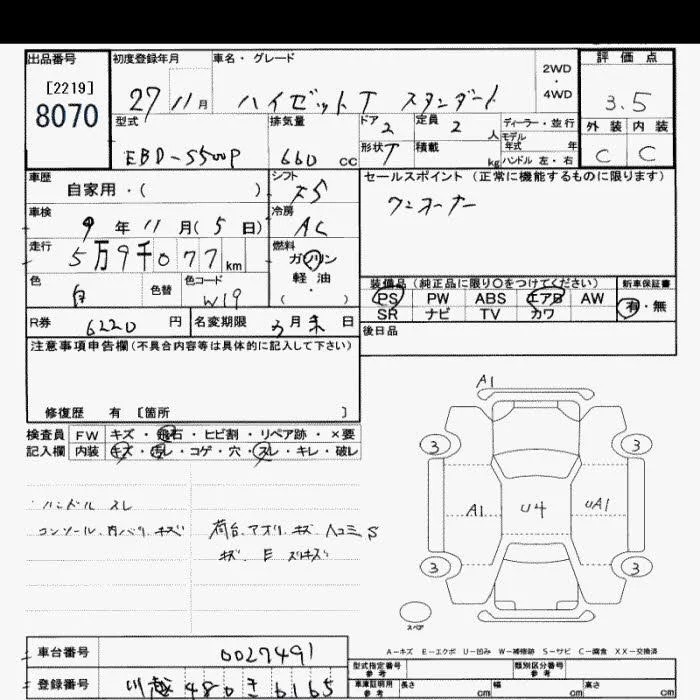 出品番号
[2219]
8070
初度登録年月
27 11月
車名・グレード
ハイゼットT スタンダード
2WD
・
4WD
評価点
3.5
外装 内装
C C
型式
EBD-S500P
排気量
660 cc
ドア 2
定員 2 人
形状 T
積載 kg
ディーラー・並行
モデル
年式 年
ハンドル 左・右
車歴
自家用・( )
シフト
F5
セールスポイント (正常に機能するものに限ります)
ワンオーナー
車検
9年 11月(5日)
冷房
AC
走行
5万9千077km
燃料
ガソリン
軽油
( ・ )
色
白
色替
色コード
W19
装備品(純正品に限り〇をつけてください)
PS PW ABS エアB AW
SR ナビ TV カワ
新車保証書
有・無
R券
6220円
名変期限
3月末日
後日品
注意事項申告欄(不具合内容等は具体的に記入して下さい)
修復歴 有 [箇所 ]
検査員
記入欄
FW キズ・飛石・ヒビ割・リペア跡・×要
内装 キズ・汚レ・コゲ・穴・スレ・キレ・破レ
ハンドル スレ
コンソール、内バリ キズ
荷台、アオリ キズ ヘコミ S
キズ、E
A1
3 3
A1 U4 UA1
3 3
スペア
A-キズ E-エクボ U-凹み W-補修跡 S-サビ C-腐食 XX-交換済
車台番号
0027491
登録番号
川越 480 き 6165
型式指定番号
参考
類別区分番号
参考
車庫証明用
参考
長さ cm 幅 cm 高さ cm